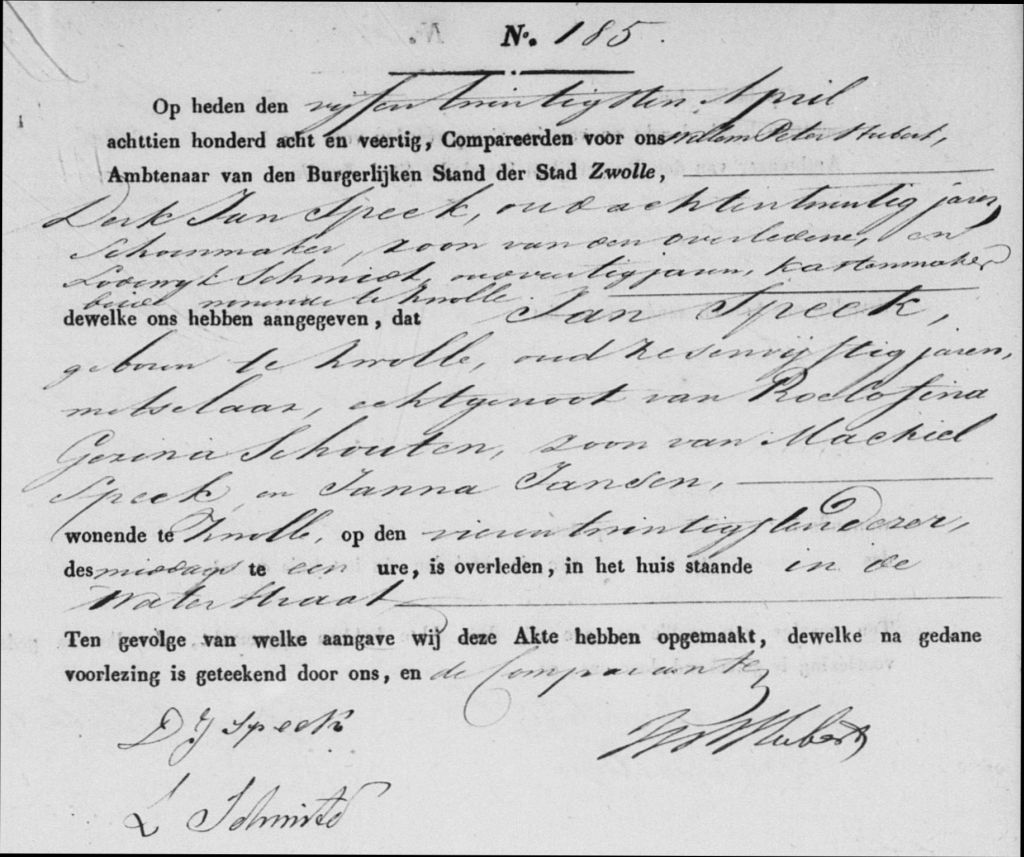 No. 185.
Op heden den vijfentwintigsten April
achttien honderd acht en veertig, Compareerden voor ons Willem Peter Hubert,
Ambtenaar van den Burgerlijken Stand der Stad Zwolle,
Derk Jan Speek, oud achtentwintig jaren,
Schoenmaker, zoon van den overledene, en
Lodewijk Schmidt, oud veertig jaren, kastenmaker
beide wonende te Zwolle
dewelke ons hebben aangegeven, dat Jan Speek,
geboren te Zwolle, oud zesenvijftig jaren,
metselaar, echtgenoot van Roelofina
Gezina Schouten, zoon van Machiel
Speek en Janna Jansen,
wonende te Zwolle, op den vierentwintigsten dezer,
des middags te een ure, is overleden, in het huis staande in de
Waterstraat
Ten gevolge van welke aangave wij deze Akte hebben opgemaakt, dewelke na gedane
voorlezing is geteekend door ons, en de Comparanten
D J Speek
WPHubert
L Schmitd